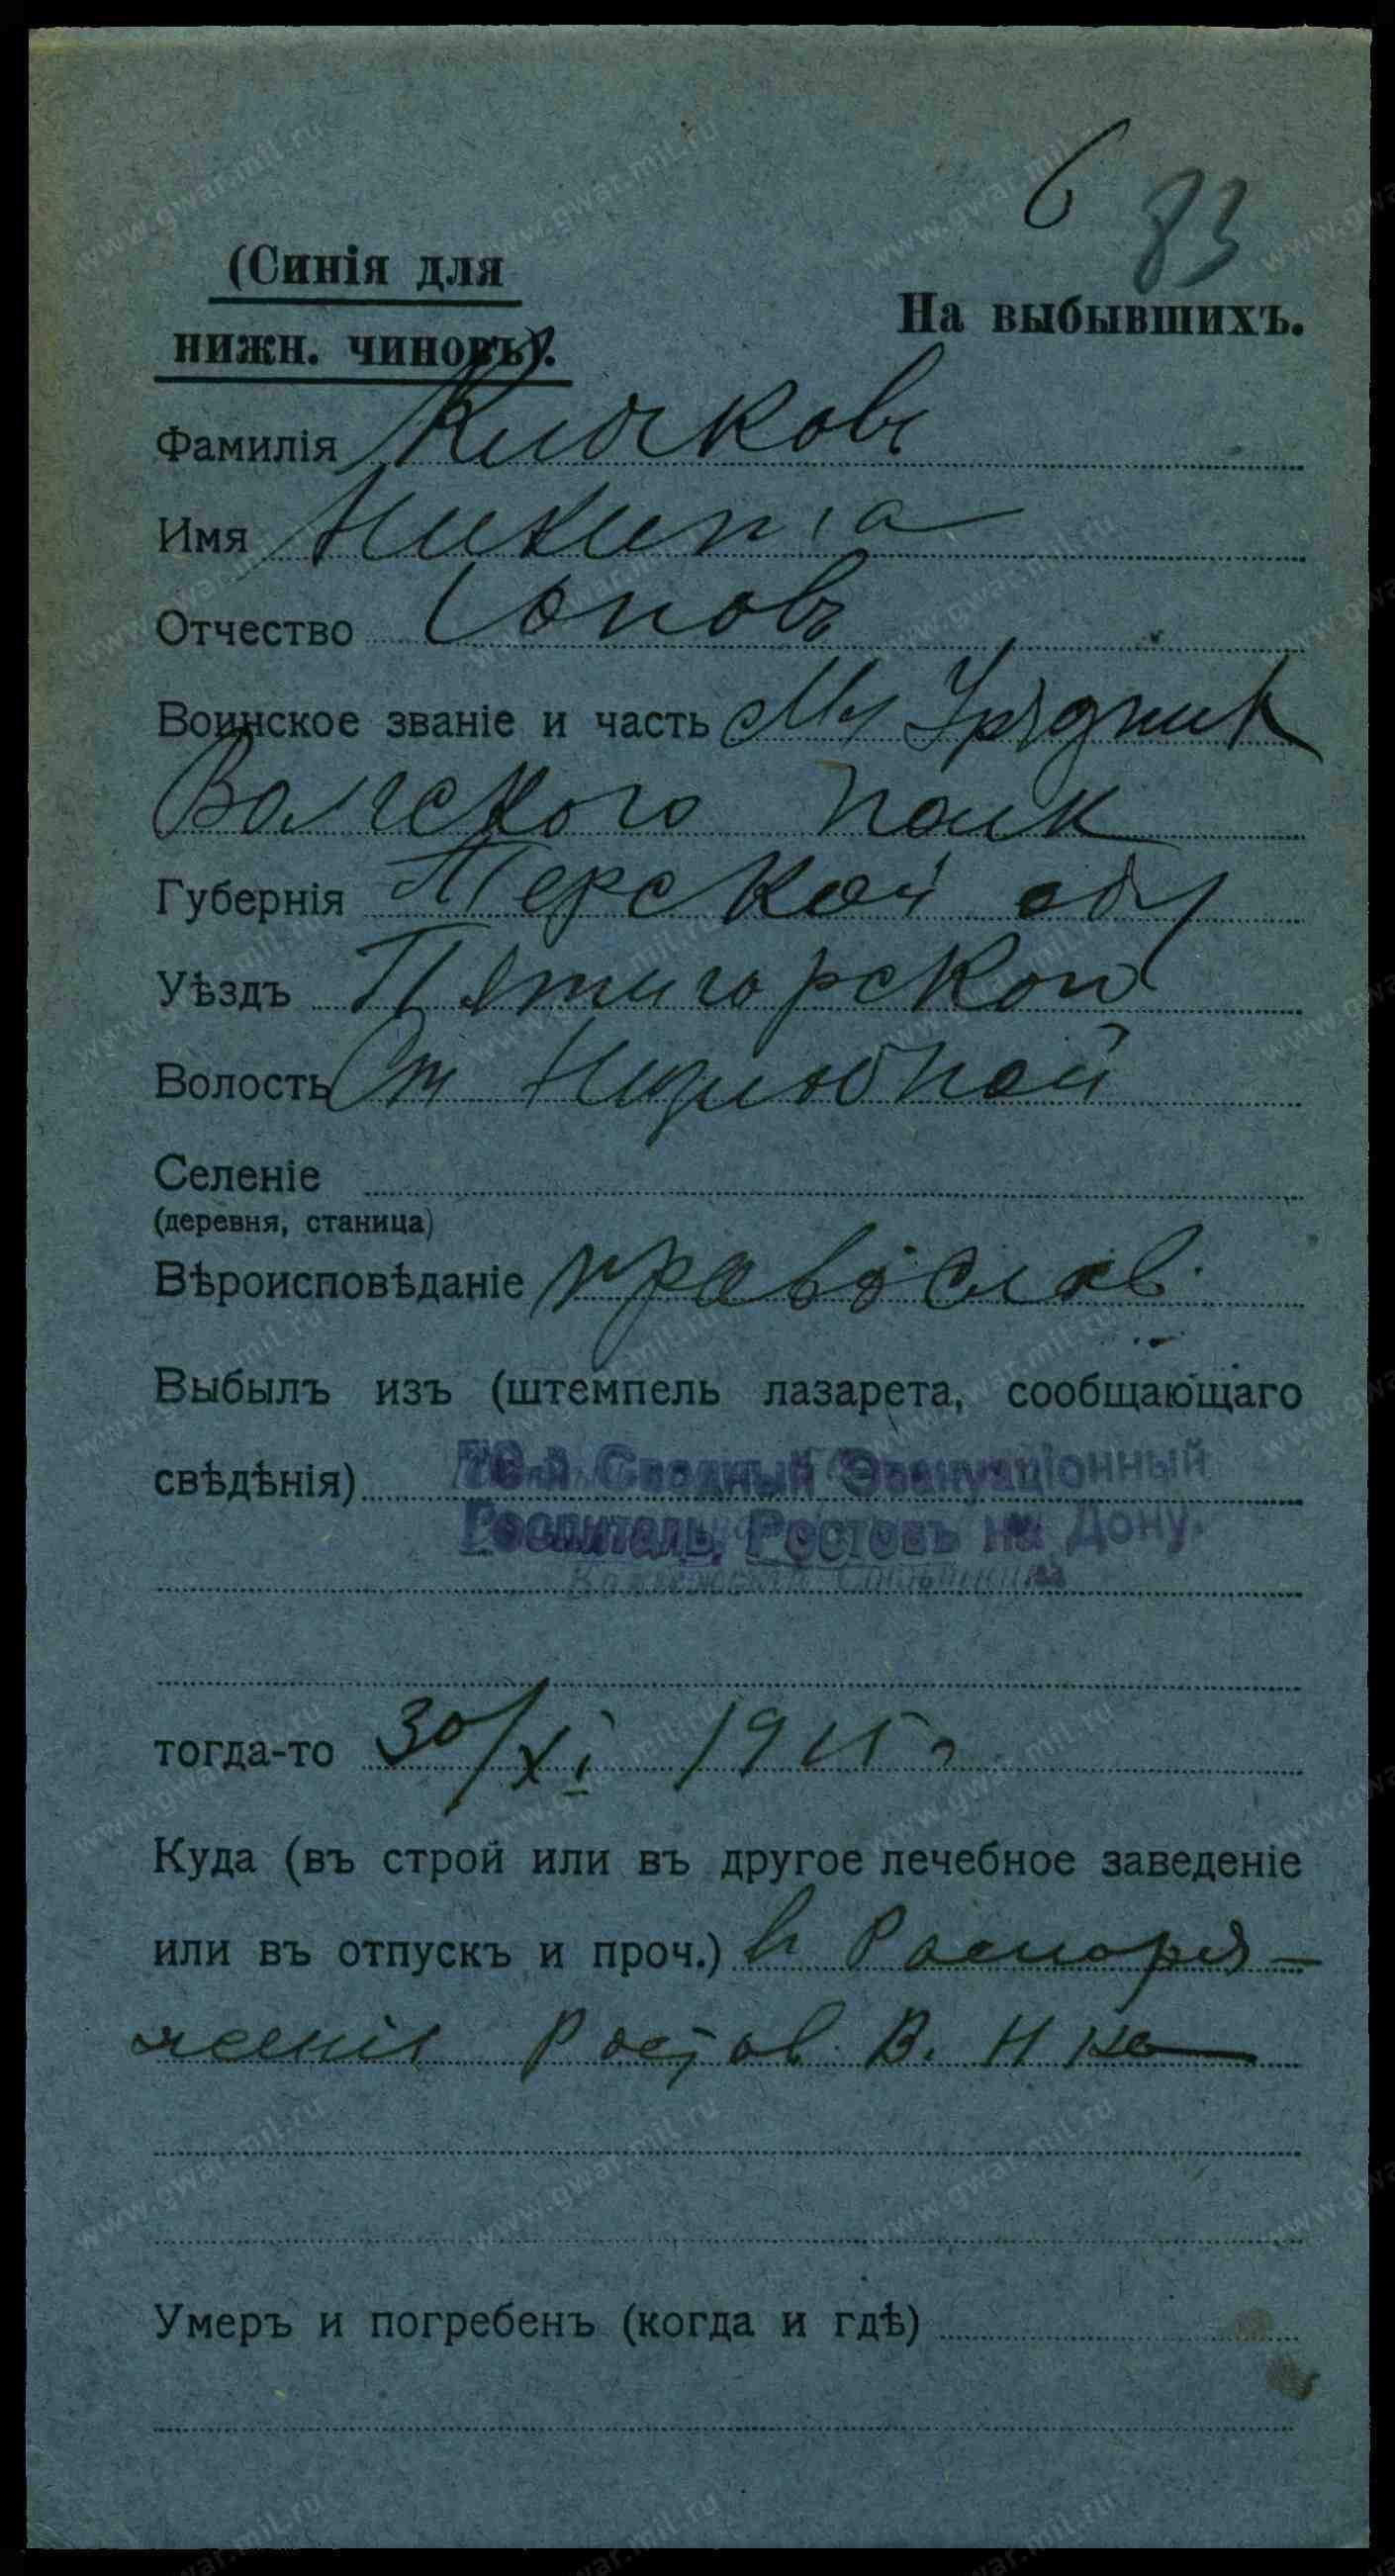 6
83
(Синія для
нижн. чиновъ).
На выбывшихъ.
Фамилія Клочковъ
Имя Никита
Отчество
Воинское званіе и часть Мл Урядник
Волгского полк
Губернія Терской обл
Уѣздъ Пятигорской
Волость Ст Незлобной
Селеніе
(деревня, станица)
Вѣроисповѣданіе православ.
Выбылъ изъ (штемпель лазарета, сообщающаго
свѣдѣнія) Сводный Эвакуаціонный
Госпиталь, Ростовъ на Дону.
тогда-то 30/XI 1915 г
Куда (въ строй или въ другое лечебное заведеніе
или въ отпускъ и проч.) в Распоря-
женія Ростов. В. Н ка
Умеръ и погребенъ (когда и гдѣ)